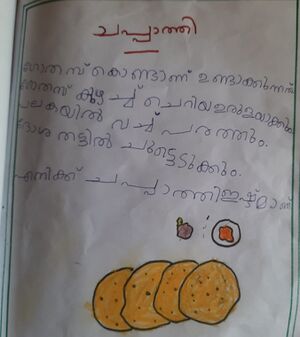 ചപ്പാത്തി
ഗോതമ്പ് കൊണ്ടാണ് ഉണ്ടാക്കുന്നത്
ഗോതമ്പ് കുഴച്ച് ചെറിയ ഉരുളയാക്കും
പലകയിൽ വച്ച് പരത്തും.
ദോശ തട്ടിൽ ചുട്ടെടുക്കും.
എനിക്ക് ചപ്പാത്തി ഇഷ്ട്മാണ്